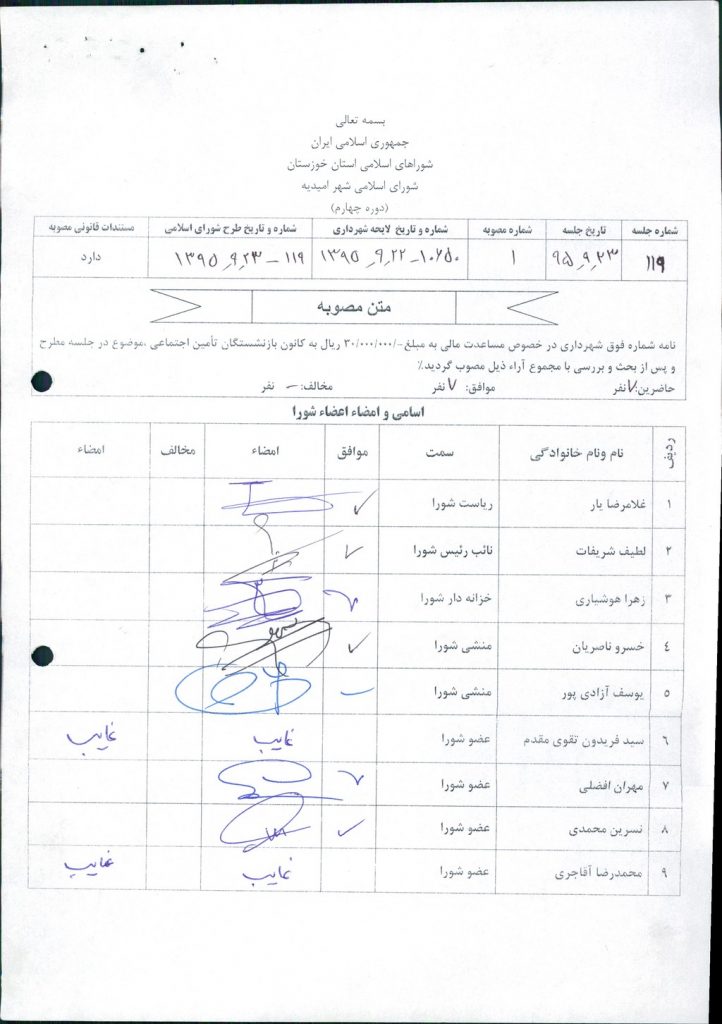 بسمه تعالی
جمهوری اسلامی ایران
شوراهای اسلامی استان خوزستان
شورای اسلامی شهر امیدیه
(دوره چهارم)
شماره جلسه تاریخ جلسه شماره مصوبه شماره و تاریخ لایحه شهرداری شماره و تاریخ طرح شورای اسلامی مستندات قانونی مصوبه
۱۱۹ ۹۵٫۹٫۲۳ ۱ ۱۰۶۵۰ـ ۱۳۹۵٫۹٫۲۲ ۱۱۹ ـ ۱۳۹۵٫۹٫۲۳ دارد
متن مصوبه
نامه شماره فوق شهرداری در خصوص مساعدت مالی به مبلغ-/۳۰/۰۰۰/۰۰۰ ریال به کانون بازنشستگان تأمین اجتماعی ،موضوع در جلسه مطرح
و پس از بحث و بررسی با مجموع آراء ذیل مصوب گردید٪
حاضرین:۷نفر موافق: ۷ نفر مخالف: – نفر
اسامی و امضاء اعضاء شورا
ردیف نام ونام خانوادگی سمت موافق امضاء مخالف امضاء
۱ غلامرضا یار ریاست شورا ✓
۲ لطیف شریفات نائب رئیس شورا ✓
۳ زهرا هوشیاری خزانه دار شورا ✓
۴ خسرو ناصریان منشی شورا ✓
۵ یوسف آزادی پور منشی شورا
۶ سید فریدون تقوی مقدم عضو شورا غایب غایب
۷ مهران افضلی عضو شورا ✓
۸ نسرین محمدی عضو شورا ✓
۹ محمدرضا آقاجری عضو شورا غایب غایب